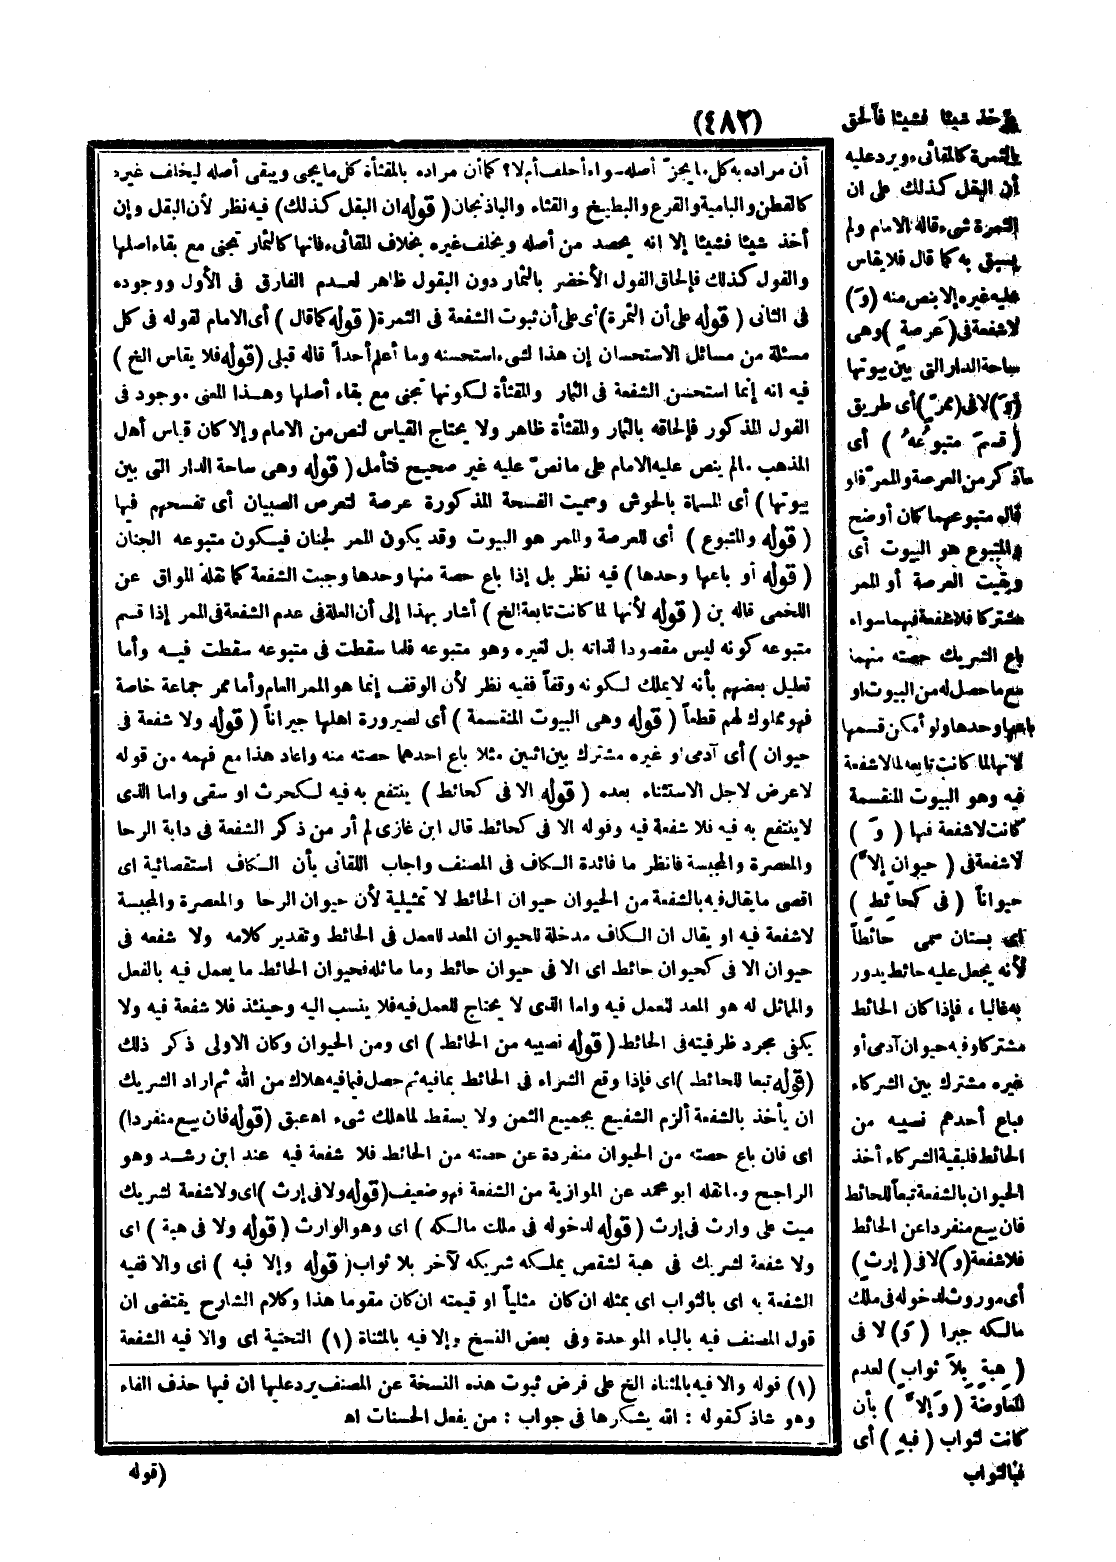 (٤٨٢)
يؤخذ شيئا فشيئا فألحق
بالثمرة كالمقاثىء ويرد عليه
أن البقل كذلك على ان
الثمرة شىء قاله الامام ولم
يسبق به كما قال فلا يقاس
عليه غيره إلا بنص منه (وَ)
لا شفعة فى (عَرصةٍ) وهى
ساحة الدار التى بين بيوتها
(وَ) لا فى (ممرّ) أى طريق
(قسمَ متبوعُهُ) أى
ما ذكر من العرصة والممر فلو
قال متبوعهما كان أوضح
والمتبوع هو البيوت أى
وبقيت العرصة أو الممر
مشتركا فلا شفعة فيهما سواء
باع الشريك حصته منهما
مع ما حصل له من البيوت او
باعها وحدها ولو أمكن قسمها
لانها لما كانت تابعه لما لا شفعة
فيه وهو البيوت المنقسمة
كانت لا شفعة فيها (وَ)
لا شفعة فى (حيوانٍ إلا)
حيواناً (فى كحائطٍ)
أى بستان سمى حائطاً
لأنه يجعل عليه حائط يدور
به غالبا، فإذا كان الحائط
مشتركا وفيه حيوان آدمى أو
غيره مشترك بين الشركاء
فباع أحدهم نصيبه من
الحائط فلبقية الشركاء أخذ
الحيوان بالشفعة تبعاً للحائط
فان بيع منفردا عن الحائط
فلا شفعة (و) لا فى (إرثٍ)
أى موروث لدخوله فى ملك
مالكه جبرا (وَ) لا فى
(هبةٍ بِلاَ ثوابٍ) لعدم
المعاوضة (وَإلا) بأن
كانت لثواب (فبهِ) أى
فبالثواب
أن مراده به كل ما يجزّ أصله سواء أخلف أم لا؟ كما أن مراده بالمقثأة كل ما يجنى ويبقى أصله ليخلف غيره
كالقطن والبامية والقرع والبطيخ والقثاء والباذنجان (قوله ان البقل كذلك) فيه نظر لأن البقل وإن
أخذ شيئا فشيئا إلا انه يحصد من أصله ويخلف غيره بخلاف المقاثىء فانها كالثمار تجنى مع بقاء اصلها
والفول كذلك فإلحاق الفول الأخضر بالثمار دون البقول ظاهر لعدم الفارق فى الأول ووجوده
فى الثانى (قوله على أن الثمرة) أى على أن ثبوت الشفعة فى الثمرة (قوله كما قال) أى الامام لقوله فى كل
مسئلة من مسائل الاستحسان إن هذا لشىء استحسنه وما أعلم أحداً قاله قبلى (قوله فلا يقاس الخ)
فيه انه إنما استحسن الشفعة فى الثمار والمقثأة لكونها تجنى مع بقاء أصلها وهذا المعنى موجود فى
الفول المذكور فإلحاقه بالثمار والمقثأة ظاهر ولا يحتاج القياس لنص من الامام وإلا كان قياس أهل
المذهب ما لم ينص عليه الامام على ما نصّ عليه غير صحيح فتأمل (قوله وهى ساحة الدار التى بين
بيوتها) أى المسماة بالحوش وسميت الفسحة المذكورة عرصة لتعرص الصبيان أى تفسحهم فيها
(قوله والمتبوع) أى للعرصة والممر هو البيوت وقد يكون الممر لجنان فيكون متبوعه الجنان
(قوله أو باعها وحدها) فيه نظر بل إذا باع حصة منها وحدها وجبت الشفعة كما نقله المواق عن
اللخمى قاله بن (قوله لأنها لما كانت تابعة الخ) أشار بهذا إلى أن العلة فى عدم الشفعة فى الممر إذا قسم
متبوعه كونه ليس مقصودا لذاته بل لغيره وهو متبوعه فلما سقطت فى متبوعه سقطت فيه وأما
تعليل بعضهم بأنه لا يملك لكونه وقفاً ففيه نظر لأن الوقف إنما هو الممر العام وأما ممر جماعة خاصة
فهو مملوك لهم قطعاً (قوله وهى البيوت المنقسمة) أى لصيرورة اهلها جيراناً (قوله ولا شفعة فى
حيوان) أى آدمى او غيره مشترك بين اثنين مثلا باع احدهما حصته منه واعاد هذا مع فهمه من قوله
لا عرض لاجل الاستثناء بعده (قوله الا فى كحائط) ينتفع به فيه لكحرث او سقى واما الذى
لا ينتفع به فيه فلا شفعة فيه وقوله الا فى كحائط قال ابن غازى لم أر من ذكر الشفعة فى دابة الرحا
والمعصرة والمجبسة فانظر ما فائدة الكاف فى المصنف واجاب اللقانى بأن الكاف استقصائية اى
اقصى ما يقال فيه بالشفعة من الحيوان حيوان الحائط لا تمثيلية لأن حيوان الرحا والمعصرة والمجبسة
لا شفعة فيه او يقال ان الكاف مدخلة للحيوان المعد للعمل فى الحائط وتقدير كلامه ولا شفعه فى
حيوان الا فى كحيوان حائط اى الا فى حيوان حائط وما ماثله فحيوان الحائط ما يعمل فيه بالفعل
والمماثل له هو المعد للعمل فيه واما الذى لا يحتاج للعمل فيه فلا ينسب اليه وحينئذ فلا شفعة فيه ولا
يكفى مجرد ظرفيته فى الحائط (قوله نصيبه من الحائط) اى ومن الحيوان وكان الاولى ذكر ذلك
(قوله تبعا للحائط) اى فإذا وقع الشراء فى الحائط بما فيه ثم حصل فيما فيه هلاك من الله ثم اراد الشريك
ان يأخذ بالشفعة ألزم الشفيع بجميع الثمن ولا يسقط لما هلك شىء اه عبق (قوله فان بيع منفردا)
اى فان باع حصته من الحيوان منفردة عن حصته من الحائط فلا شفعة فيه عند ابن رشد وهو
الراجح وما نقله ابو محمد عن الموازية من الشفعة فهو ضعيف (قوله ولا فى إرث) اى ولا شفعة لشريك
ميت على وارث فى إرث (قوله لدخوله فى ملك مالكه) اى وهو الوارث (قوله ولا فى هبة) اى
ولا شفعة لشريك فى هبة لشقص يملكه شريكه لآخر بلا ثواب (قوله وإلا فبه) اى والا ففيه
الشفعة به اى بالثواب اى بمثله ان كان مثلياً او قيمته ان كان مقوما هذا وكلام الشارح يقتضى ان
قول المصنف فبه بالباء الموحدة وفى بعض النسخ وإلا فيه بالمثناة (١) التحتية اى والا فيه الشفعة
(١) قوله والا فيه بالمثناة الخ على فرض ثبوت هذه النسخة عن المصنف يرد عليها ان فيها حذف الفاء
وهو شاذ كقوله : الله يشكرها فى جواب : من يفعل الحسنات اه
(قوله